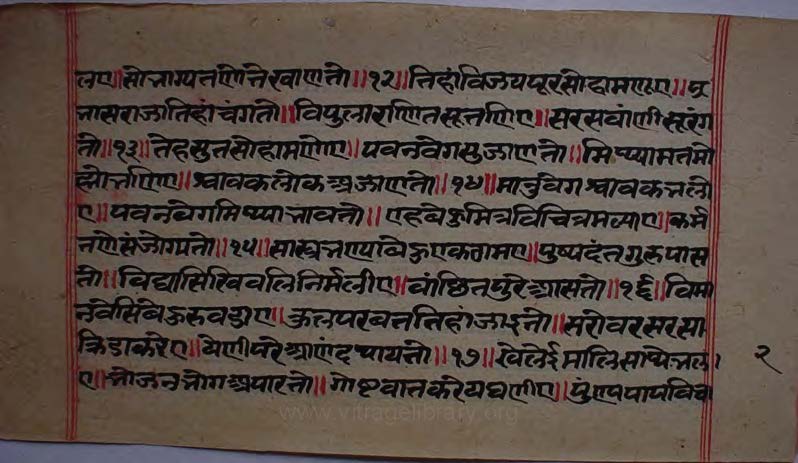 लए॥सोभाग्यतणोतेरवाणतो॥१२॥तिहांविजयपूरसोहामणूए॥प्र
भासराजातिहांचंगतो॥विपुलाराणितसूतणिए॥सरसवांणीसूरंग
तो॥१३॥तेहसुतसोहामणोए॥पवनवेगसुजाणतो॥मिथ्यामतमो
ह्योभणिए॥श्रावकलोकअजाणतो॥१४॥मानुवेगश्रावकभलो
ए॥पवनवेगमिथ्याभावतो॥एहबेऊमित्रविचित्रमल्याए॥कर्म
तणेसंजोग्यतो॥१५॥सास्त्रभण्याबेऊएकठामए॥पुष्पदंतगुरुपास
तो॥विद्यासिखिवलिनिर्मलीए॥वांछितपुरेआसतो॥१६॥विमा
नबेसिबेऊरुवडाए॥ऊलपरबततिहांजाइतो॥सरोवरसरसा
क्रिडाकरेए॥येणीपरेआणंदथायतो॥१७॥खेलेईमालिसाथेभला
ए॥भोजनभोगअपारतो॥गोष्टवातकरेयघणीए॥पुंण्यपापविचा
२
www.vitragelibrary.org